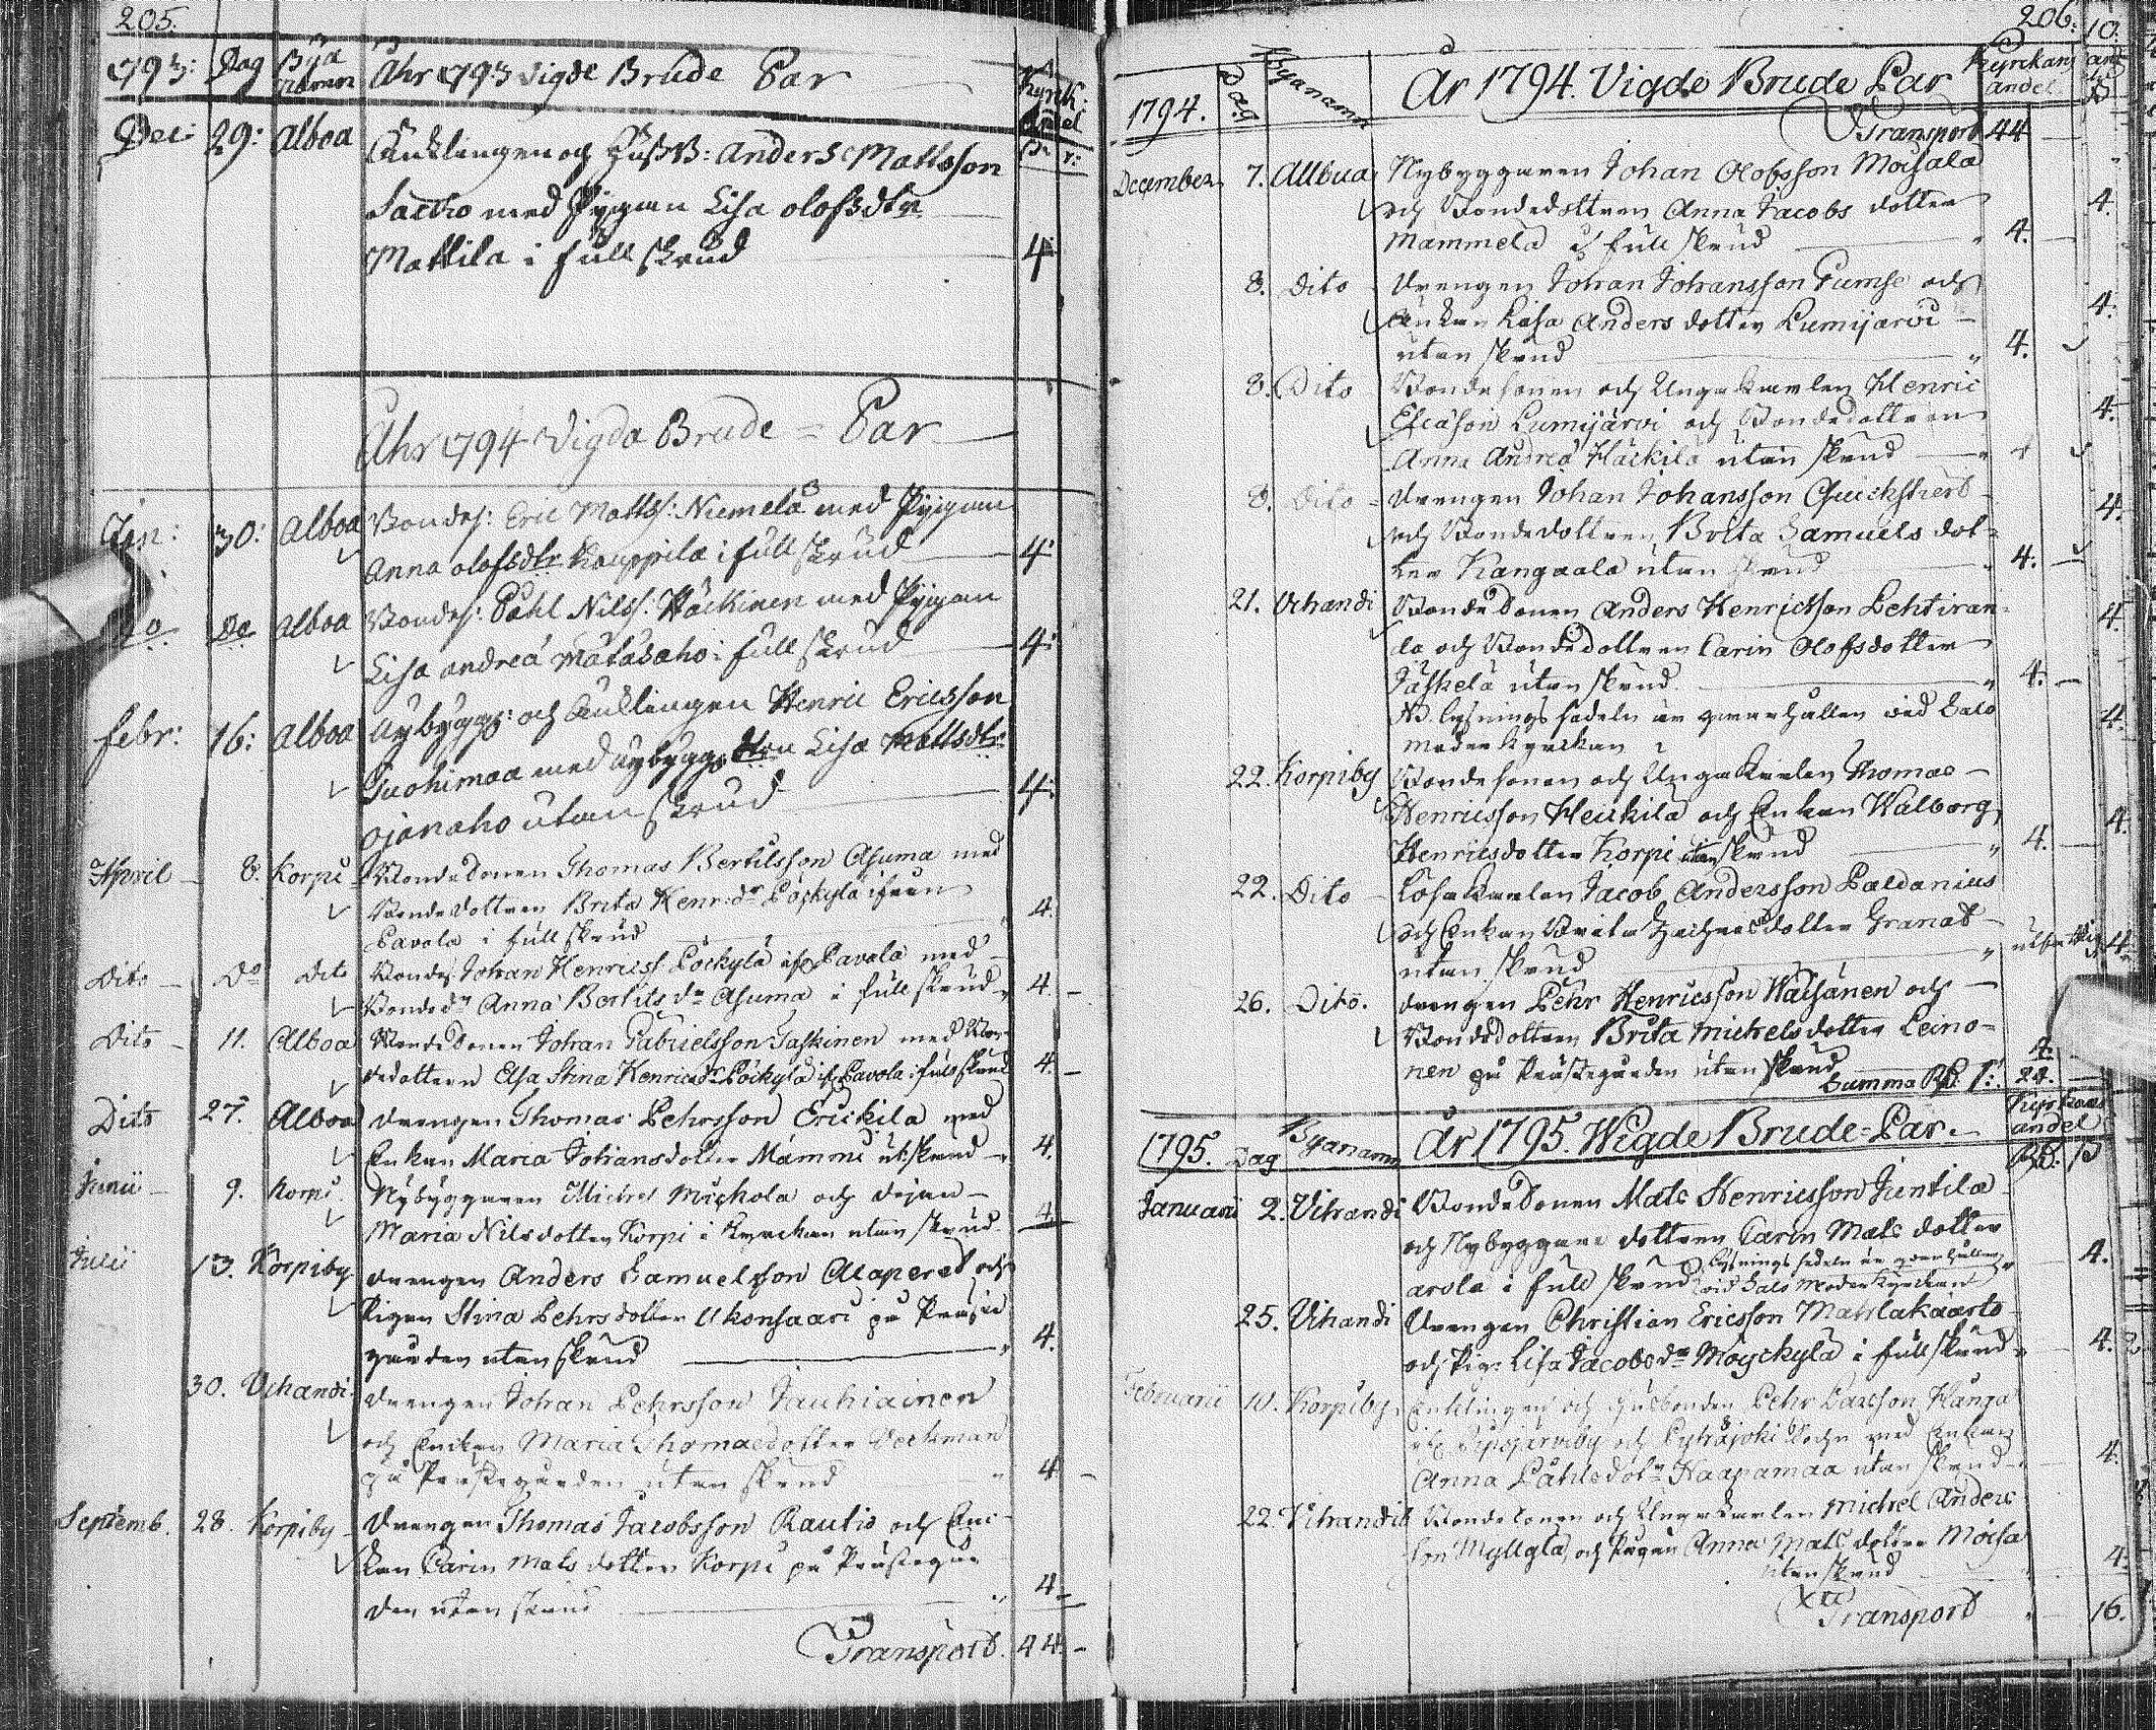 205.
1793: Dag Bya namn Åhr 1793 Vigde Brude Par Kyrck: Andel
Dec: 29: Alboa Änklingen och Husb: Anders Mattsson
Saeho med Pigan Lisa olofsdtr
Mattila i full skrud 4
Åhr 1794 Vigda Brude = Par
Jan: 30: Alboa Bondes: Eric Matts: Niemelä med Pigan
Anna olofsdtr Kauppila i full skrud 4
do do Alboa Bondes: Påhl Nilss: Häckinen med Pigan
Lisa andreæ Matasaho i full skrud 4:
febr: 16: Alboa Nybygg: och Änklingen Henric Ericsson
Tuohimaa med nybyggs dtren Lisa Mattsdtr
Ojanaho utan skrud 4:
April 8. Korpi Bonde Sonen Thomas Bertilsson Asuma med
Bonde dottren Brita Henr: dr Pöykylä ifrån
Pavola i full skrud 4.
Dito Do Dito Bondes Johan Henricss Pöckylä if. Pavola med
Bonded:r Anna Bertils dr Asuma i full skrud 4.
Dito 11. Alboa Bonde Sonen Johan Gabrielsson Taskinen med Bon-
dedottren Elsa Stina Henricsdr Pöckylä if. Pavola i full skrud 4.
Dito 27. Alboa drengen Thomas Pehrsson Erickila med
Enkan Maria Johansdotter Mämmi ut skrud 4.
Junii 9. Korpi. Nybyggaren Michel Muckola och Pigan
Maria Nilsdotter Korpi i Kyrckan utan skrud. 4
Julii 13. Korpiby drengen Anders Samuelsson Alaperet och
Pigan Stina Pehrsdotter Ukonsaari på Präste
gården utan skrud 4.
30. Vihandi. drengen Johan Pehrsson Jauhiainen
och Enckan Maria Thomasdotter Veckman
på Prästegården utan skrud 4
Septemb. 28. Korpiby drengen Thomas Jacobsson Rautio och En-
kan Carin Mats dotter Korpi på Prästegår
den utan skrud 4
Transport. 44.
206. 10.
1794. Dag Byanamn År 1794. Vigde Brude Par Kyrckans andel.
Transport 44
December 7. Allbua Nybyggaren Johan Olofsson Moisala
och Bondedottren Anna Jacobs dotter 4.
Mammela i full skrud 4.
8. Dito drengen Johan Johansson Gumse och
Enkan Lisa Anders dotter Lumijärvi 4.
utan skrud 4.
8. Dito Bonde sonen och Ungkarlen Henric
Esaiason Lumijärvi och Bondedottren 4.
Anna Andreæ Häckilä utan skrud 4
8. Dito drengen Johan Johansson Quickstierb
och Bondedottren Brita Samuels dot= 4.
ter Kangaala utan skrud 4.
21. Vihandi Bonde Sonen Anders Henricsson Lehtiran= 4.
da och Bondedottren Carin Olofsdotter
Jäskelä utan skrud. 4.
NB. lysnings sedeln är qvarhållen vid Salo
moder kyrckan 4.
22. Korpiby Bonde sonen och Ungkarlen Thomas
Henricsson Heickilä och Enkan Walborg 4.
Henricsdotter Korpi utan skrud 4.
22. Dito Löskarlen Jacob Andersson Paldanius
och Enkan Brita dotter Granat
utan skrud 4
26. Dito. drengen Pehr Henricsson Wäisänen och
Bondedottren Brita Michelsdotter Leino=
nen på Prästegården utan skrud 4.
Summa Rd. 1: 24.
1795. Dag Byanamn År 1795. Wigde Brude=Par. Kyrckans andel
Januarii 2. Vihandi Bonde Sonen Mats Henricsson Juntila
och Nybyggare dottren Carin Mats dotter
arola i full skrud lysnings sedeln är qvarhållen vid Salo Moder Kyrckan 4.
25. Vihandi Drengen Christian Ericsson Mahlakaarto
och Pig: Lisa Jacobsdr Möyckylä i full skrud 4.
Februarii 10. Korpiby. Enklingen och Husbonden Pehr Larsson Kanga
if. järviby och Pyhäjoki Sochn med Enkan
Anna Påhlsdotr Haapamaa utan skrud 4.
22. Vihandi Bonde Sonen och Ungkarlen Michel Anders
son Myllylä och Pigan Anna Mats dotter Moisa
utan skrud 4.
Transport 16.